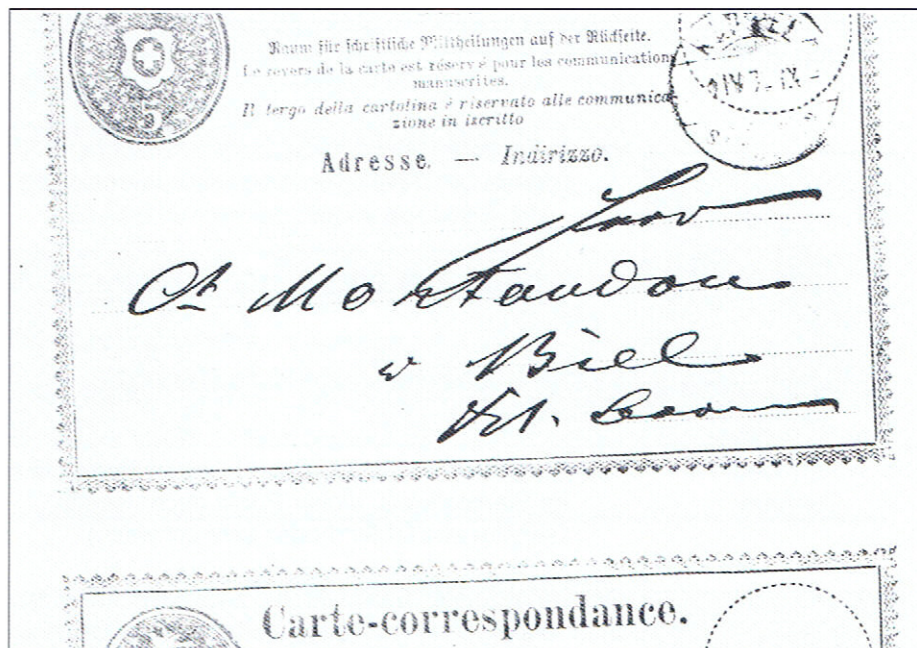 Raum für schriftliche Mittheilungen auf der Rückseite.
Le revers de la carte est réservé pour les communications
manuscrites.
Il tergo della cartolina è riservato alle communica-
zione in iscritto
5
Adresse. — Indirizzo.
Ct Montandon
Biel
Kt. Bern
Carte-correspondance.